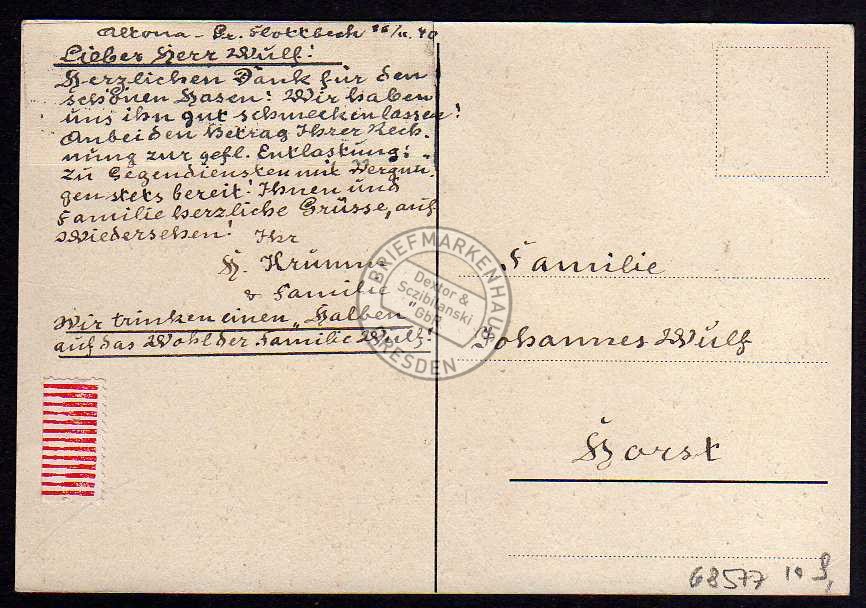 Altona - Gr. Flottbeck 26/11.40
Lieber Herr Wulf!
Herzlichen Dank für den
schönen Hasen! Wir haben
uns ihn gut schmecken lassen!
Anbei den Betrag Ihrer Rech-
nung zur gefl. Entlastung!
Zu Gegendiensten mit Vergnü-
gen stets bereit! Ihnen und
Familie herzliche Grüsse, auf
Wiedersehen! Ihr
H. Krumm
& Familie
Wir trinken einen „Halben"
auf das Wohl der Familie Wulf!
Familie
Johannes Wulf
Horst
68577 10
BRIEFMARKENHAUS
Dexler &
Sczibilanski
GbR
DRESDEN